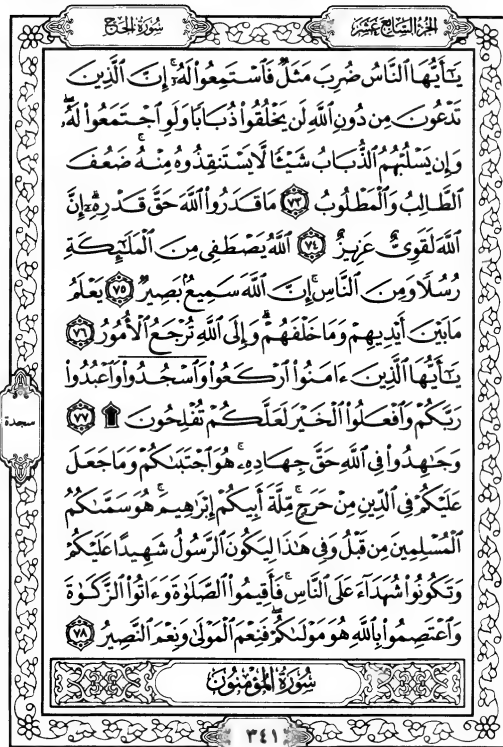 الجزء السابع عشر
سورة الحج
يَـٰٓأَيُّهَا ٱلنَّاسُ ضُرِبَ مَثَلٌ فَٱسْتَمِعُوا۟ لَهُۥٓ ۚ إِنَّ ٱلَّذِينَ
تَدْعُونَ مِن دُونِ ٱللَّهِ لَن يَخْلُقُوا۟ ذُبَابًا وَلَوِ ٱجْتَمَعُوا۟ لَهُۥ ۖ
وَإِن يَسْلُبْهُمُ ٱلذُّبَابُ شَيْـًٔا لَّا يَسْتَنقِذُوهُ مِنْهُ ۚ ضَعُفَ
ٱلطَّالِبُ وَٱلْمَطْلُوبُ ٧٣ مَا قَدَرُوا۟ ٱللَّهَ حَقَّ قَدْرِهِۦٓ ۗ إِنَّ
ٱللَّهَ لَقَوِىٌّ عَزِيزٌ ٧٤ ٱللَّهُ يَصْطَفِى مِنَ ٱلْمَلَـٰٓئِكَةِ
رُسُلًا وَمِنَ ٱلنَّاسِ ۚ إِنَّ ٱللَّهَ سَمِيعٌۢ بَصِيرٌ ٧٥ يَعْلَمُ
مَا بَيْنَ أَيْدِيهِمْ وَمَا خَلْفَهُمْ ۗ وَإِلَى ٱللَّهِ تُرْجَعُ ٱلْأُمُورُ ٧٦
يَـٰٓأَيُّهَا ٱلَّذِينَ ءَامَنُوا۟ ٱرْكَعُوا۟ وَٱسْجُدُوا۟ وَٱعْبُدُوا۟
رَبَّكُمْ وَٱفْعَلُوا۟ ٱلْخَيْرَ لَعَلَّكُمْ تُفْلِحُونَ ۩ ٧٧
سجدة
وَجَـٰهِدُوا۟ فِى ٱللَّهِ حَقَّ جِهَادِهِۦ ۚ هُوَ ٱجْتَبَىٰكُمْ وَمَا جَعَلَ
عَلَيْكُمْ فِى ٱلدِّينِ مِنْ حَرَجٍ ۚ مِّلَّةَ أَبِيكُمْ إِبْرَٰهِيمَ ۚ هُوَ سَمَّىٰكُمُ
ٱلْمُسْلِمِينَ مِن قَبْلُ وَفِى هَـٰذَا لِيَكُونَ ٱلرَّسُولُ شَهِيدًا عَلَيْكُمْ
وَتَكُونُوا۟ شُهَدَآءَ عَلَى ٱلنَّاسِ ۚ فَأَقِيمُوا۟ ٱلصَّلَوٰةَ وَءَاتُوا۟ ٱلزَّكَوٰةَ
وَٱعْتَصِمُوا۟ بِٱللَّهِ هُوَ مَوْلَىٰكُمْ ۖ فَنِعْمَ ٱلْمَوْلَىٰ وَنِعْمَ ٱلنَّصِيرُ ٧٨
سُورَةُ المُؤْمِنُونَ
٣٤١